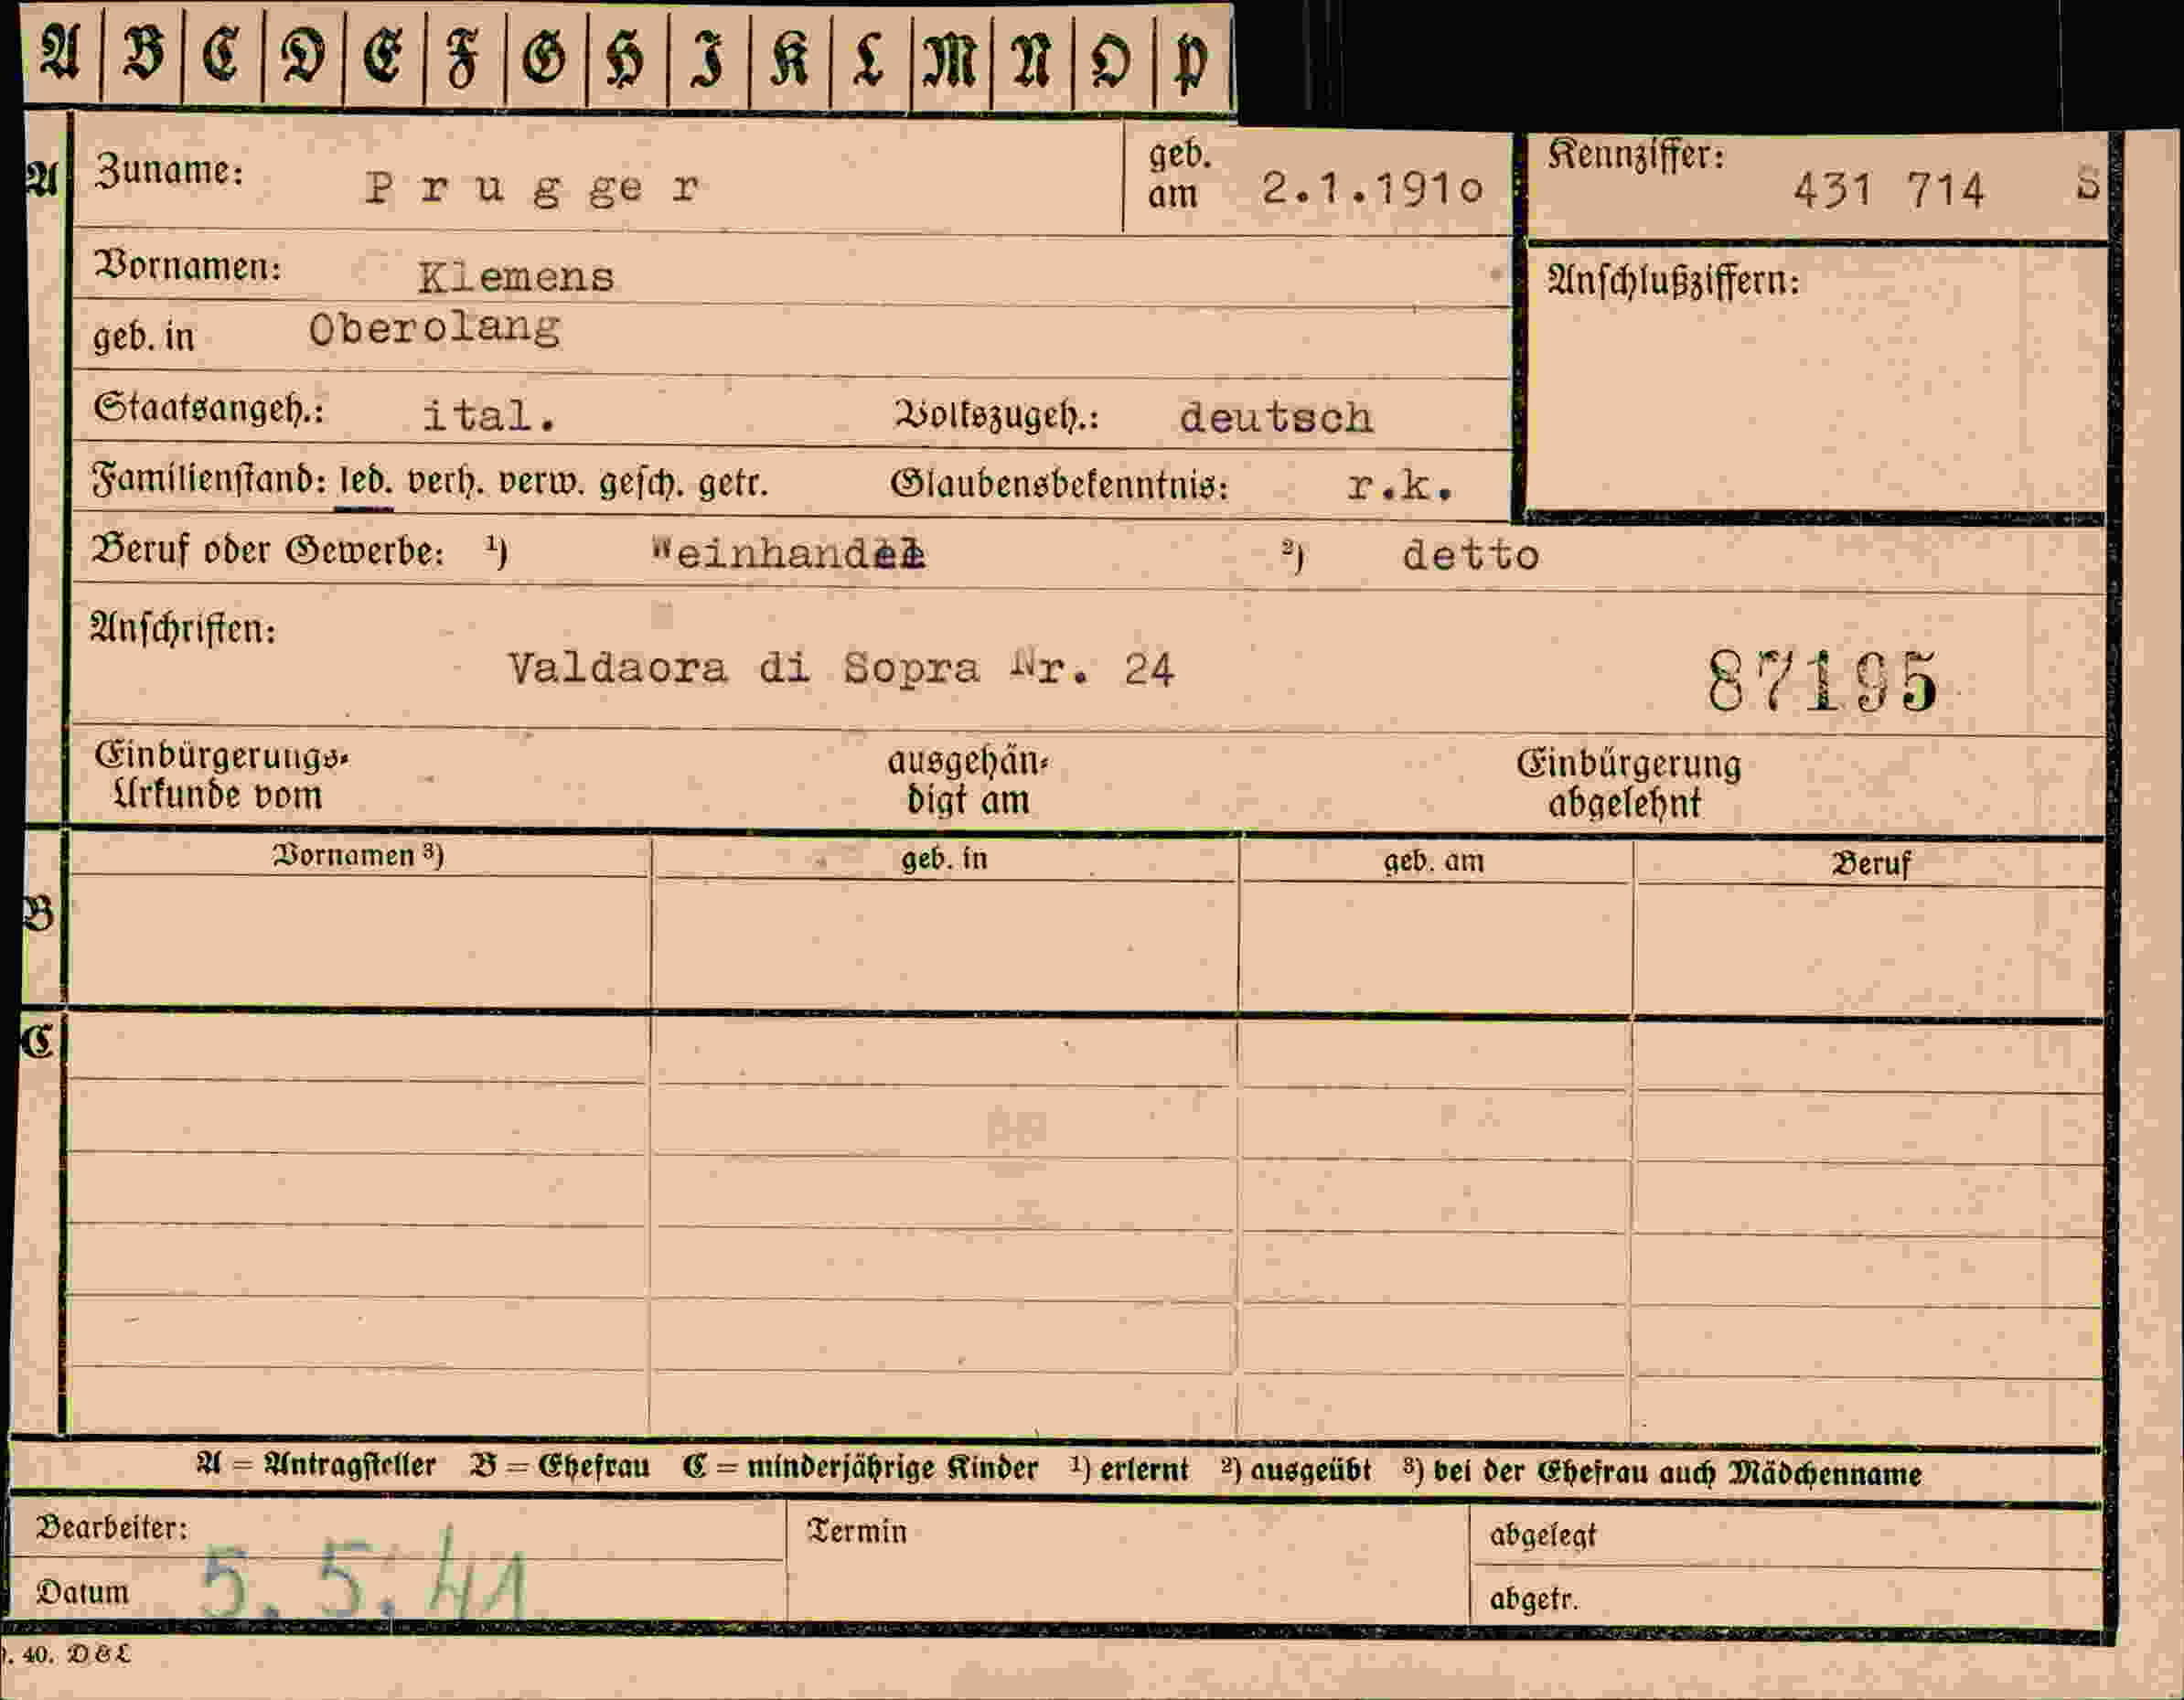 A B C D E F G H I K L M N O P
A Zuname: Prugger geb. am 2.1.191o Kennziffer: 431 714 S
Vornamen: Klemens Anschlußziffern:
geb. in Oberolang
Staatsangeh.: ital. Volkszugeh.: deutsch
Familienstand: led. verh. verw. gesch. getr. Glaubensbekenntnis: r.k.
Beruf oder Gewerbe: ¹) Weinhandel ²) detto
Anschriften:
Valdaora di Sopra Nr. 24 87195
Einbürgerungs- ausgehän- Einbürgerung
Urkunde vom digt am abgelehnt
Vornamen ³) geb. in geb. am Beruf
B
C
A = Antragsteller B = Ehefrau C = minderjährige Kinder ¹) erlernt ²) ausgeübt ³) bei der Ehefrau auch Mädchenname
Bearbeiter: Termin abgelegt
Datum 5. 5. 41 abgetr.
. 40. D&L